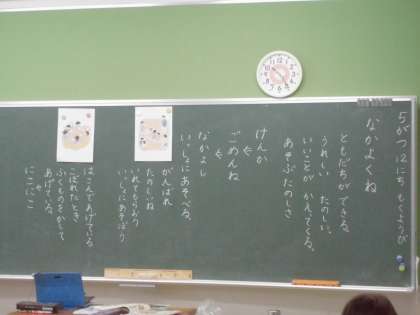 5がつ12にち もくようび
なかよくね
ともだちが できる。
うれしい たのしい。
いいことが かえってくる。
あそぶ たのしさ
けんか
ごめんね
なかよし
いっしょに あそべる。
がんばれ
たのしいね
いれてもらおう
いっしょにあそぼう
はこんであげている
こぼれたとき
ふくものをかして
あげている。
にこにこ